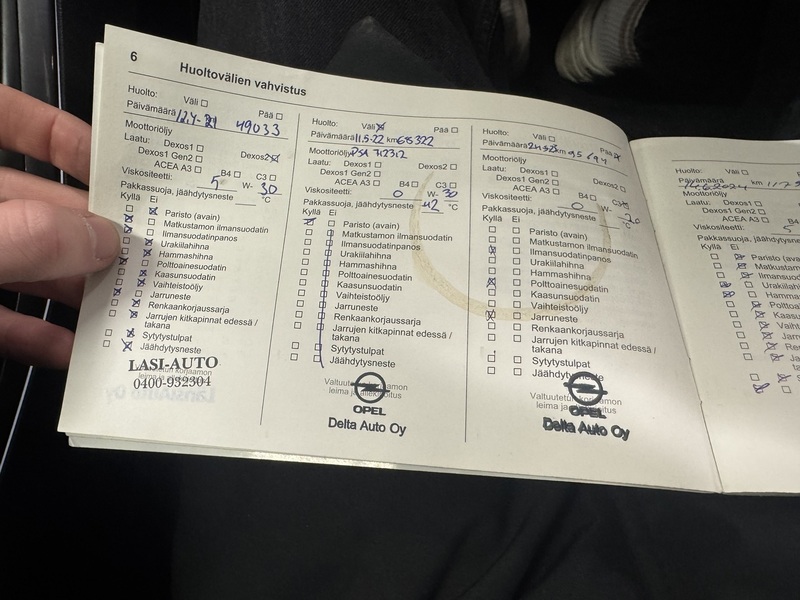 6
Huoltovälien vahvistus
Huolto:
Väli
Pää
Päivämäärä 12.4-21 49033
Moottoriöljy
Laatu: Dexos1
Dexos2
Dexos1 Gen2
ACEA A3
B4
C3
Viskositeetti: 5 W- 30
Pakkassuoja, jäähdytysneste °C
Kyllä Ei
Paristo (avain)
Matkustamon ilmansuodatin
Ilmansuodatinpanos
Urakiilahihna
Hammashihna
Polttoainesuodatin
Kaasunsuodatin
Vaihteistoöljy
Jarruneste
Renkaankorjaussarja
Jarrujen kitkapinnat edessä /
takana
Sytytystulpat
Jäähdytysneste
LASI-AUTO
0400-932304
Huolto:
Väli
Pää
Päivämäärä 11.5-22 km 68322
Moottoriöljy PSA 712312
Laatu: Dexos1
Dexos2
Dexos1 Gen2
ACEA A3
B4
C3
Viskositeetti: 0 W- 30
Pakkassuoja, jäähdytysneste -42 °C
Kyllä Ei
Paristo (avain)
Matkustamon ilmansuodatin
Ilmansuodatinpanos
Urakiilahihna
Hammashihna
Polttoainesuodatin
Kaasunsuodatin
Vaihteistoöljy
Jarruneste
Renkaankorjaussarja
Jarrujen kitkapinnat edessä /
takana
Sytytystulpat
Jäähdytysneste
OPEL
Delta Auto Oy
Huolto:
Väli
Pää
Päivämäärä km 95694
Moottoriöljy
Laatu: Dexos1
Dexos2
Dexos1 Gen2
ACEA A3
B4
C3
Viskositeetti: 0 W-
Pakkassuoja, jäähdytysneste °C
Kyllä Ei
Paristo (avain)
Matkustamon ilmansuodatin
Ilmansuodatinpanos
Urakiilahihna
Hammashihna
Polttoainesuodatin
Kaasunsuodatin
Vaihteistoöljy
Jarruneste
Renkaankorjaussarja
Jarrujen kitkapinnat edessä /
takana
Sytytystulpat
Jäähdytysneste
Valtuutetun korjaamon
leima ja allekirjoitus
OPEL
Delta Auto Oy
Huolto:
Päivämäärä 14.6.2024 km
Moottoriöljy
Laatu: Dexos1
Dexos1 Gen2
ACEA A3
Viskositeetti: 5
Kyllä Ei